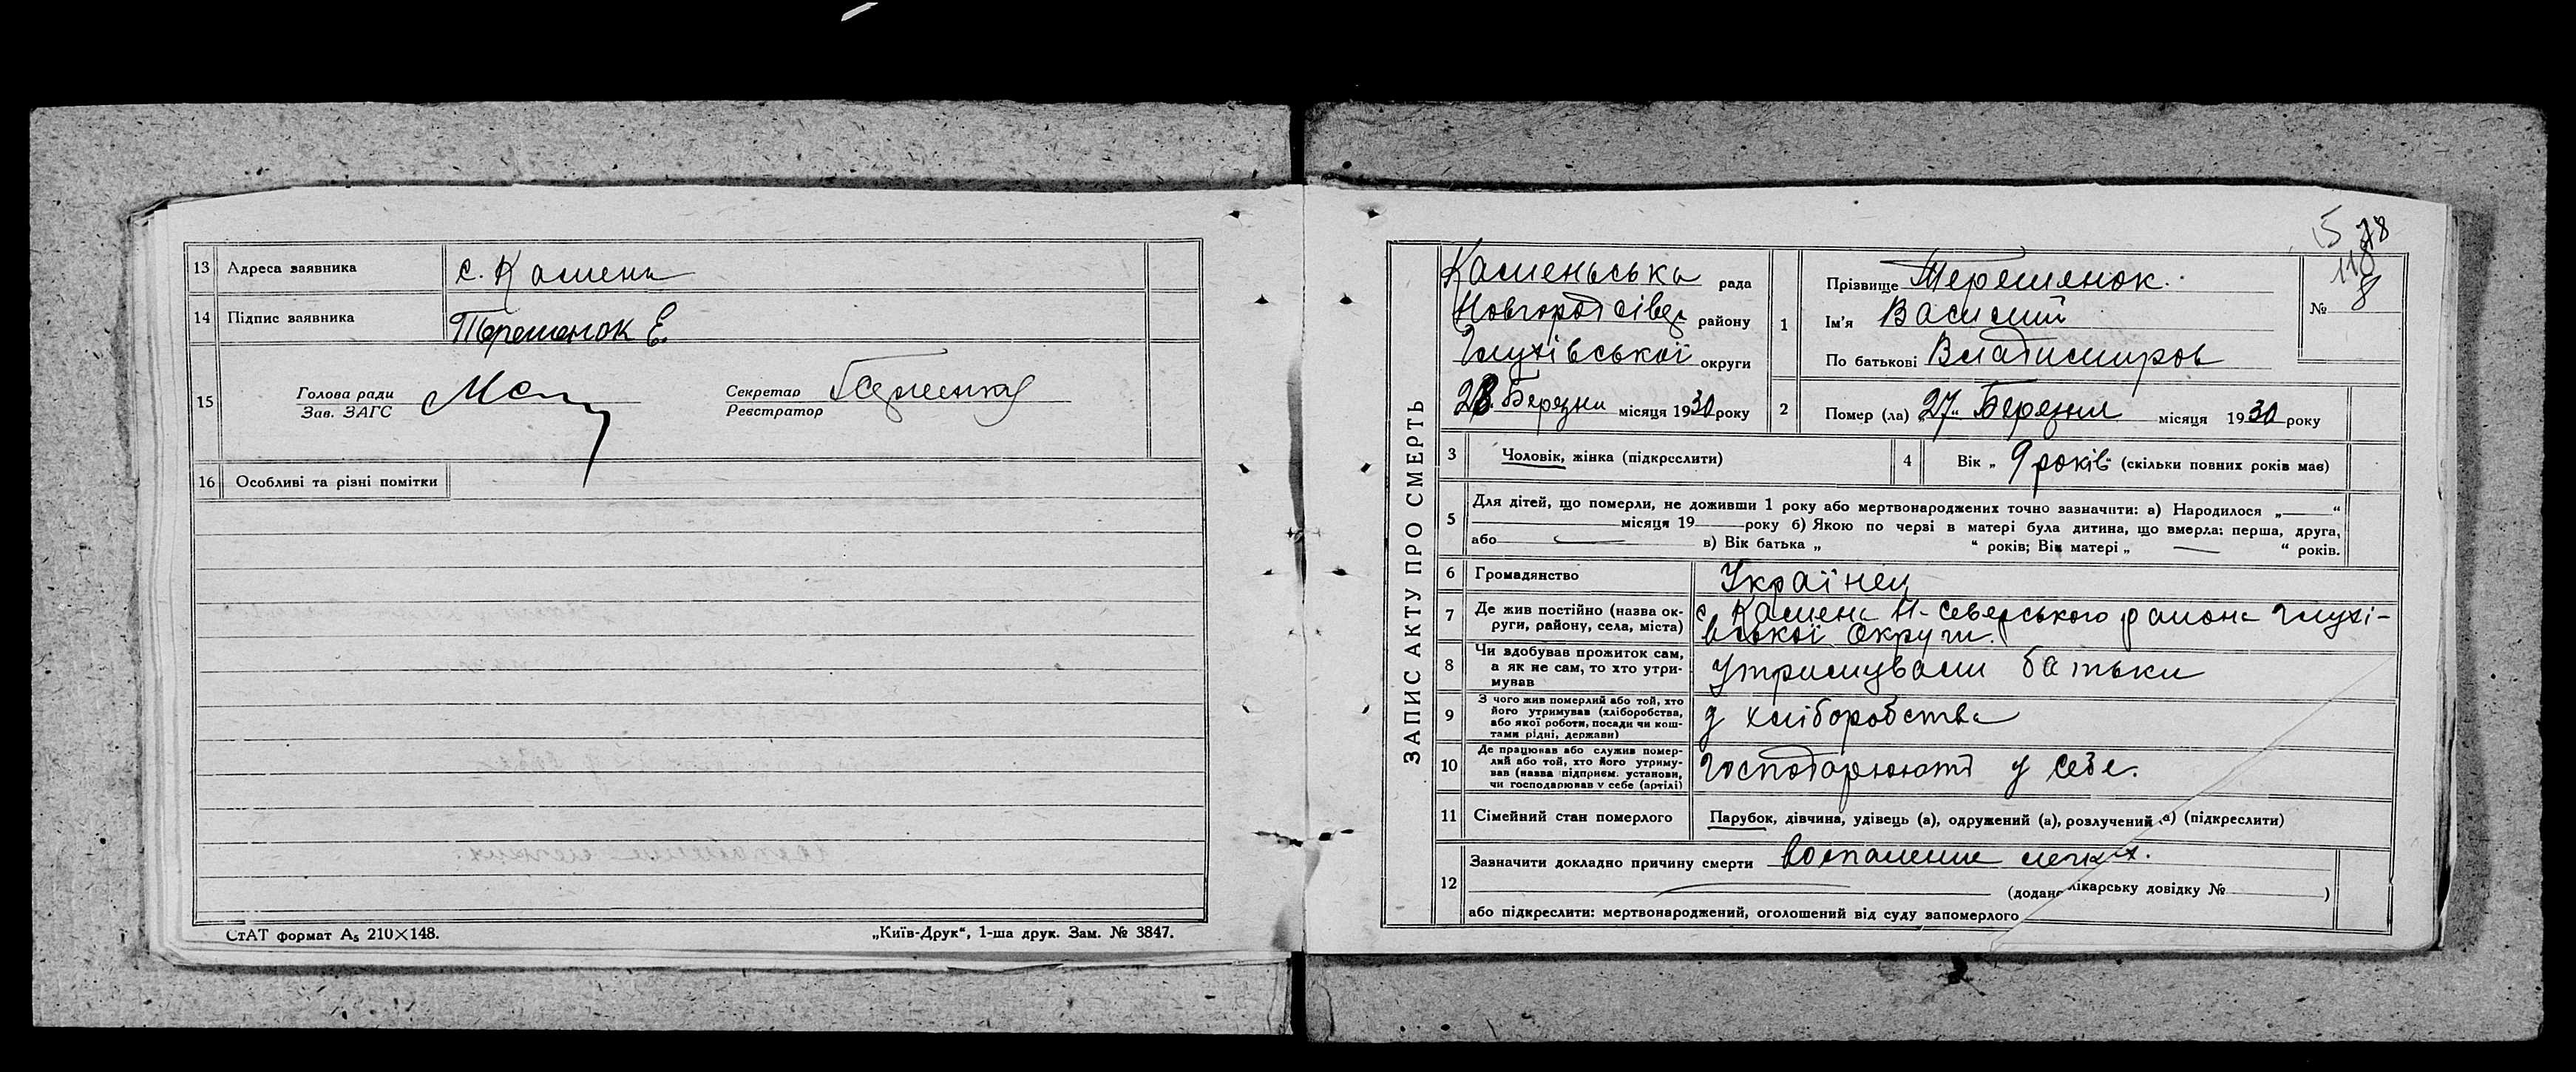 13 Адреса заявника с. Камень
14 Підпис заявника Терешенок Е.
15 Голова ради
Зав. ЗАГС
Секретар
Реєстратор
16 Особливі та різні помітки
СтАТ формат А₅ 210×148.
„Київ-Друк“, 1-ша друк. Зам. № 3847.
15 78
118
ЗАПИС АКТУ ПРО СМЕРТЬ
Каменьська рада
Новгород Сівер району
Глухівської округи
28. Березня місяця 1930 року
1 Прізвище Терешенок.
Ім'я Василий
По батькові Владимиров
№ 8
2 Помер (ла) „27“ Березня місяця 1930 року
3 Чоловік, жінка (підкреслити)
4 Вік „9 років“ (скільки повних років мав)
5 Для дітей, що померли, не доживши 1 року або мертвонароджених точно зазначити: а) Народилося „ “
місяця 19 року б) Якою по черзі в матері була дитина, що вмерла: перша, друга,
або в) Вік батька „ “ років; Вік матері „ “ років.
6 Громадянство Українец
7 Де жив постійно (назва ок-
руги, району, села, міста)
с. Камень Н-Северського района Глухі-
вської Округи.
8 Чи здобував прожиток сам,
а як не сам, то хто утри-
мував
утримували батьки
9 З чого жив померлий або той, хто
його утримував (хліборобства,
або якої роботи, посади чи кош-
тами рідні, держави)
з хліборобства
10 Де працював або служив помер-
лий або той, хто його утриму-
вав (назва підприєм. установи,
чи господарював у себе (артілі)
господарюють у себе.
11 Сімейний стан померлого Парубок, дівчина, удівець (а), одружений (а), розлучений (а) (підкреслити)
12 Зазначити докладно причину смерти воспаление легких.
(додано лікарську довідку № )
або підкреслити: мертвонароджений, оголошений від суду запомерлого